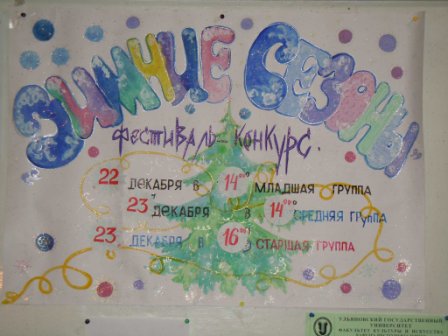 ЗИМНИЕ СЕЗОНЫ
ФЕСТИВАЛЬ-КОНКУРС.
22 ДЕКАБРЯ В 14⁰⁰ МЛАДШАЯ ГРУППА
23 ДЕКАБРЯ В 14⁰⁰ СРЕДНЯЯ ГРУППА
23 ДЕКАБРЯ В 16⁰⁰ СТАРШАЯ ГРУППА
УЛЬЯНОВСКИЙ ГОСУДАРСТВЕННЫЙ
УНИВЕРСИТЕТ
ФАКУЛЬТЕТ КУЛЬТУРЫ И ИСКУССТВА